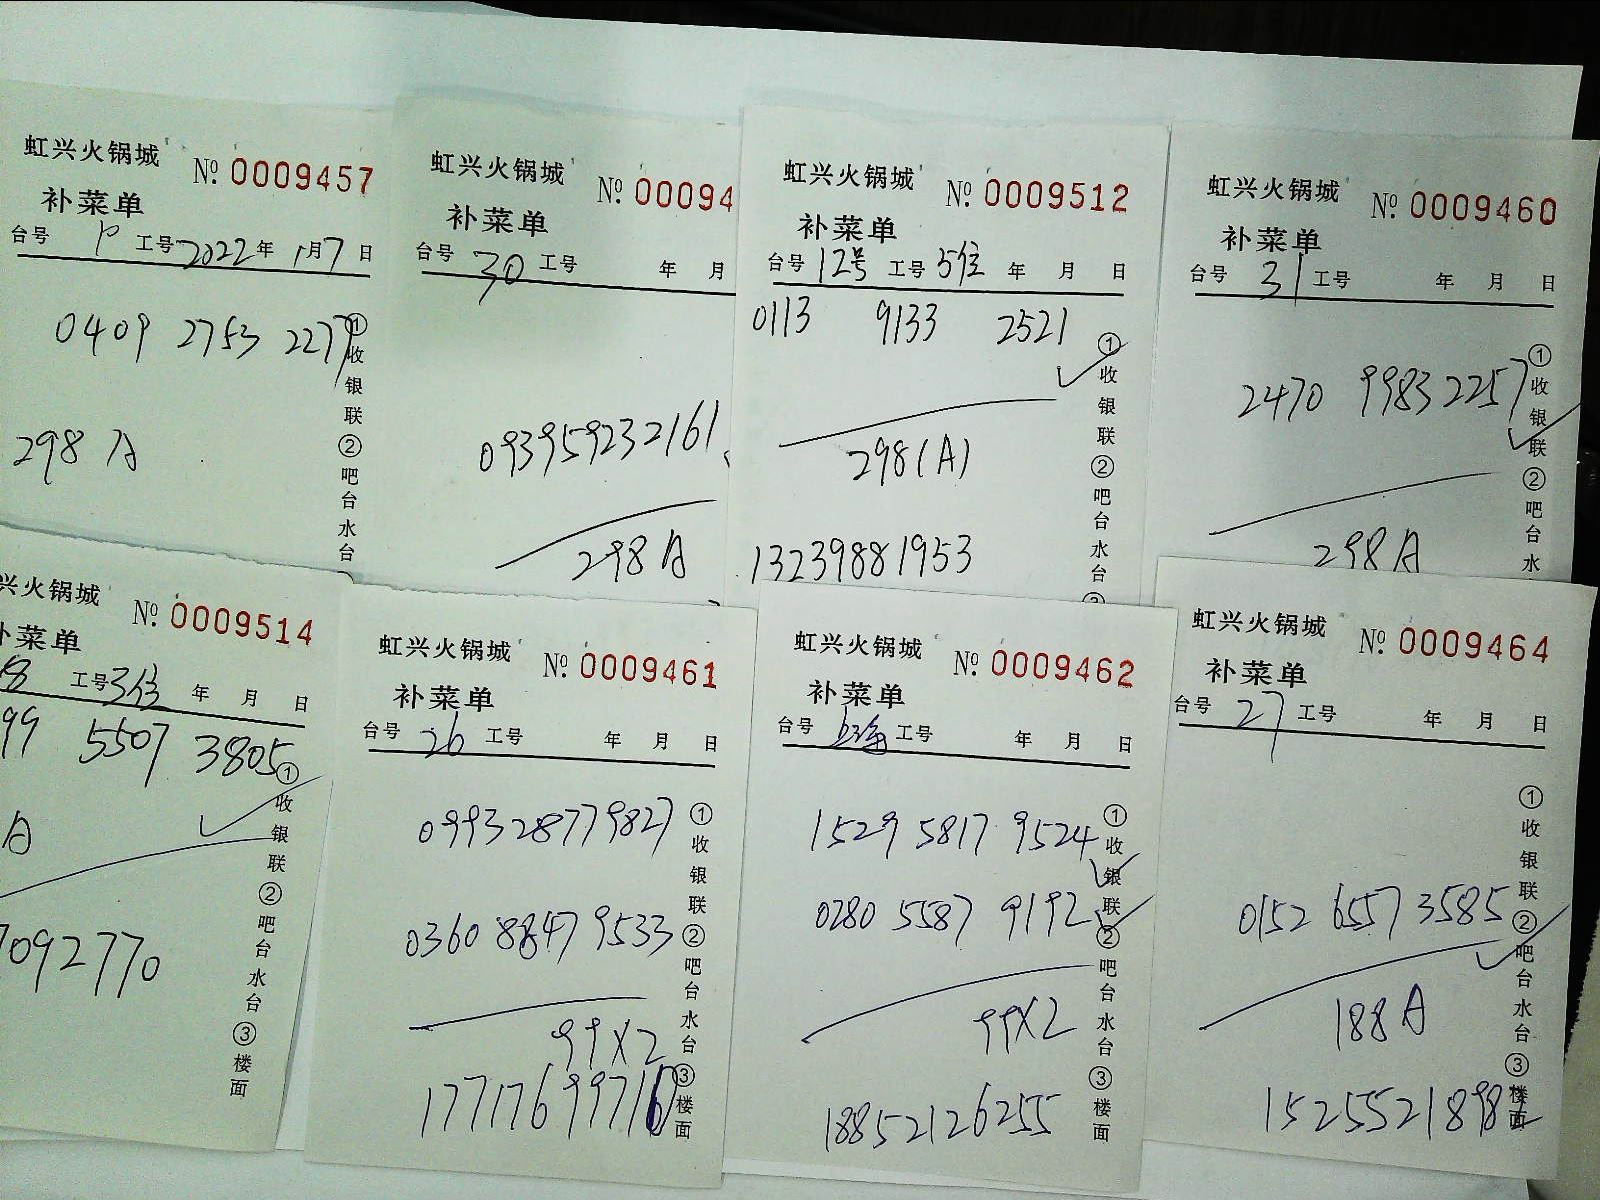 虹兴火锅城 № 0009457
补菜单
台号 工号 2022年 1月7日
0409 2753 2277
298 A
①收银联②吧台水台
虹兴火锅城 № 00094
补菜单
台号 30 工号 年 月
093959232161
298 A
虹兴火锅城 № 0009512
补菜单
台号 12号 工号 5位 年 月 日
0113 9133 2521
298(A)
13239881953
①收银联②吧台水台③
虹兴火锅城 № 0009460
补菜单
台号 31 工号 年 月 日
2470 9983 2257
298A
①收银联②吧台水
兴火锅城 № 0009514
补菜单
号 工号 3位 年 月 日
99 5507 3805
A
7092770
①收银联②吧台水台③楼面
虹兴火锅城 № 0009461
补菜单
台号 26 工号 年 月 日
0993 2877 9827
0360 8847 9533
99X2
17717699716
①收银联②吧台水台③楼面
虹兴火锅城 № 0009462
补菜单
台号 上海 工号 年 月 日
1529 5817 9524
0280 5587 9192
99X2
18852126255
①收银联②吧台水台③楼面
虹兴火锅城 № 0009464
补菜单
台号 27 工号 年 月 日
0152 6557 3585
188A
15255218982
①收银联②吧台水台③楼面